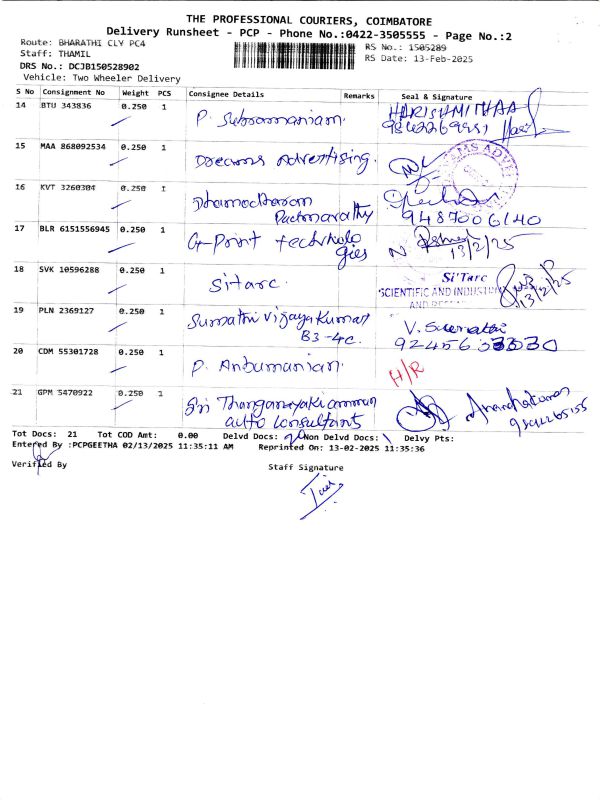 THE PROFESSIONAL COURIERS, COIMBATORE
Delivery Runsheet - PCP - Phone No.:0422-3505555 - Page No.:2
Route: BHARATHI CLY PC4
RS No.: 1505289
Staff: THAMIL
RS Date: 13-Feb-2025
DRS No.: DCJB150528902
Vehicle: Two Wheeler Delivery
S No Consignment No Weight PCS Consignee Details Remarks Seal & Signature
14 BTU 343836 0.250 1 P. Subramaniam. HARISHMITHAA
15 MAA 868092534 0.250 1 Dreams Advertising.
16 KVT 3260304 0.250 1 Dhamodharan
Padmavathy 9487006140
17 BLR 6151556945 0.250 1 G-Point Technolo
gies 13/2/25
18 SVK 10596288 0.250 1 Sitarc. Si'Tarc
SCIENTIFIC AND INDUSTRI
13/2/25
19 PLN 2369127 0.250 1 Sumathi Vijayakumar
B3-4C. V. Sumathi
20 CDM 55301728 0.250 1 P. Anbumanian. H/R
21 GPM 5470922 0.250 1 Sri Thanganayaki amman
auto consultants
Tot Docs: 21 Tot COD Amt: 0.00 Delvd Docs: Non Delvd Docs: Delvy Pts:
Entered By :PCPGEETHA 02/13/2025 11:35:11 AM Reprinted On: 13-02-2025 11:35:36
Verified By
Staff Signature